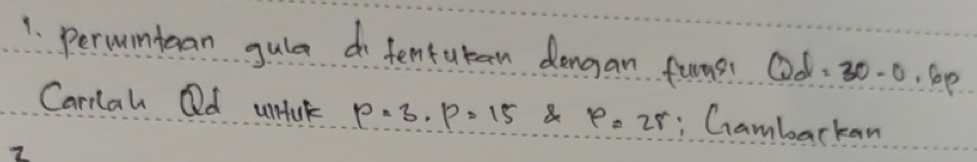 1. permintaan gula di tentukan dengan fungsi Qd = 30 - 0,6p
Carilah Qd untuk p = 3. p = 15 & p = 25 ; Gambarkan
2